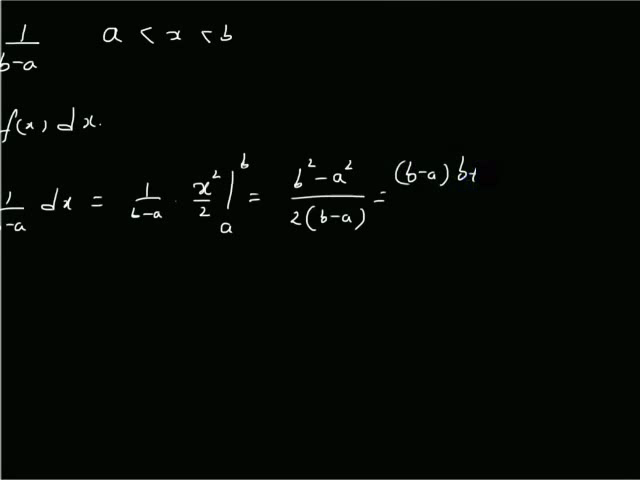 1/(b-a)   a < x < b
f(x) dx.
1/(b-a) dx = 1/(b-a) · x²/2 |ₐᵇ = (b² - a²)/(2(b-a)) = (b-a) b+